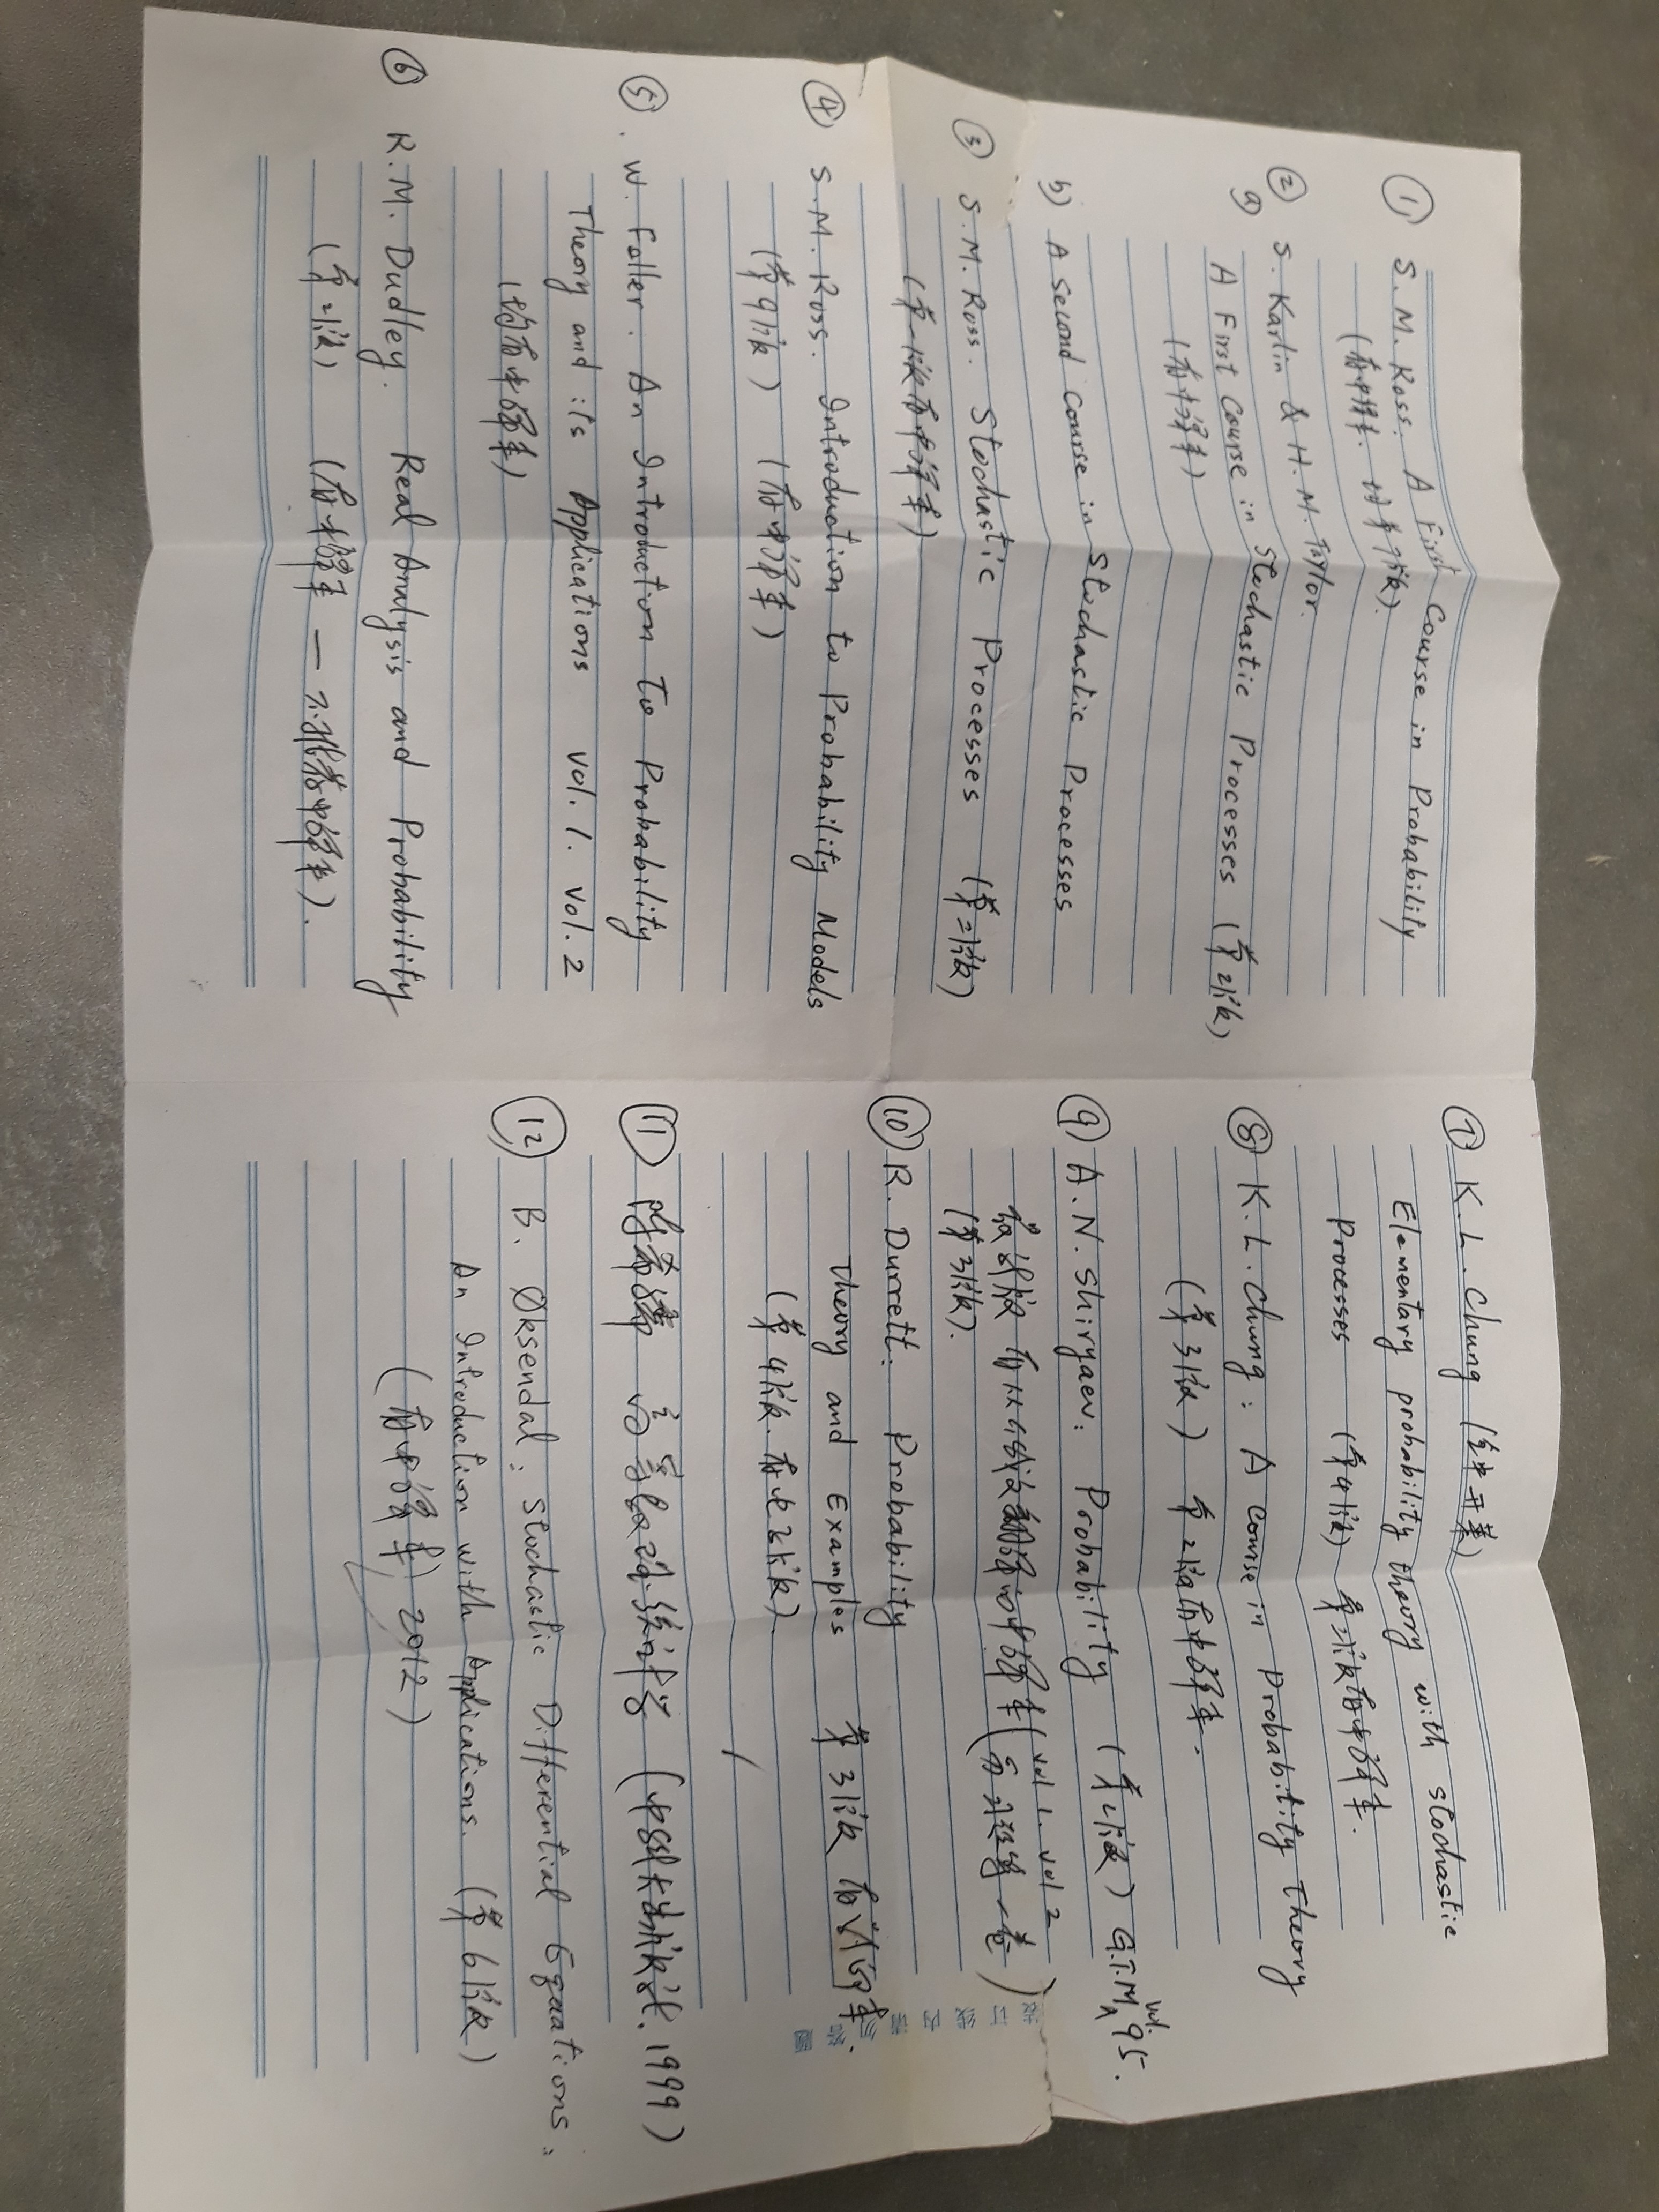 ① S. M. Ross. A First Course in Probability
(有中译本. 均第7版).
② S. Karlin & H. M. Taylor.
a) A First Course in Stochastic Processes (第2版)
(有中译本)
b) A Second Course in Stochastic Processes
③ S. M. Ross. Stochastic Processes (第二版)
(第一版有中译本)
④ S. M. Ross. Introduction to Probability Models
(第9版) (有中译本)
⑤. W. Feller. An Introduction To Probability
Theory and its Applications vol. 1. vol. 2
(均有中译本)
⑥ R.M. Dudley. Real Analysis and Probability
(第2版) (有中译本 — 不推荐中译本).
⑦ K. L. Chung (钟开莱)
Elementary probability theory with stochastic
Processes (第4版) 第版有中译本.
⑧ K. L. Chung: A course in Probability Theory
(第3版) 第2版有中译本.
⑨ A. N. Shiryaev: Probability (第2版) G.T.M vol. 95.
最新版 有从俄文翻译的中译本 (vol 1. vol 2
一卷)
(第3版).
⑩ R. Durrett: Probability
Theory and Examples 第3版 有影印本.
(第4版. 有电子版).
⑪ 陈希孺 高等数理统计学 (中科大出版社. 1999)
⑫ B. Øksendal: Stochastic Differential Equations:
An Introduction with Applications. (第6版)
(有中译本) 2012)
装订线内请勿答题